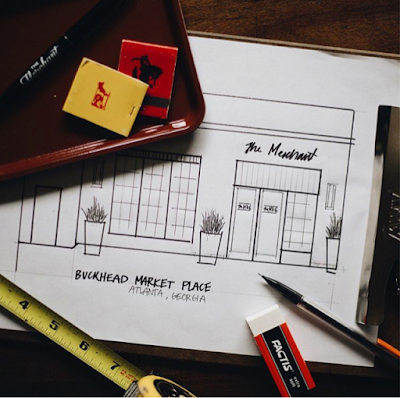 The
Merchant
The Merchant
BUCKHEAD MARKET PLACE
ATLANTA, GEORGIA
4
5
6
7
FACTIS